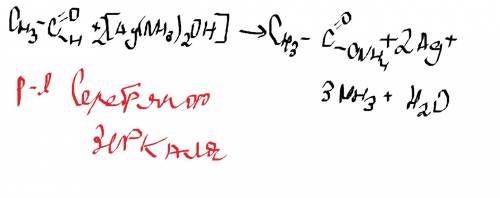 CH3-C=O-H + 2[Ag(NH3)2OH] → CH3-C=O-ONH4 + 2Ag +
3NH3 + H2O
р-я Серебряного
зеркала